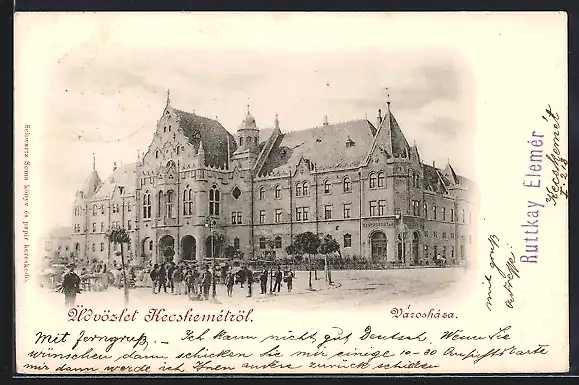 Schwartz Soma könyv és papír kereskedő.
Üdvözlet Kecskemétről.
Városháza.
Ruttkay Elemér
Kecskemét
mit gruß
adresse
Mit ferngruß. – Ich kann nicht gut Deutsch. Wenn Sie
wünschen dann schicken Sie mir einige 10-20 Ansichtskarte
mir dann werde ich Ihnen andere zurück schicken